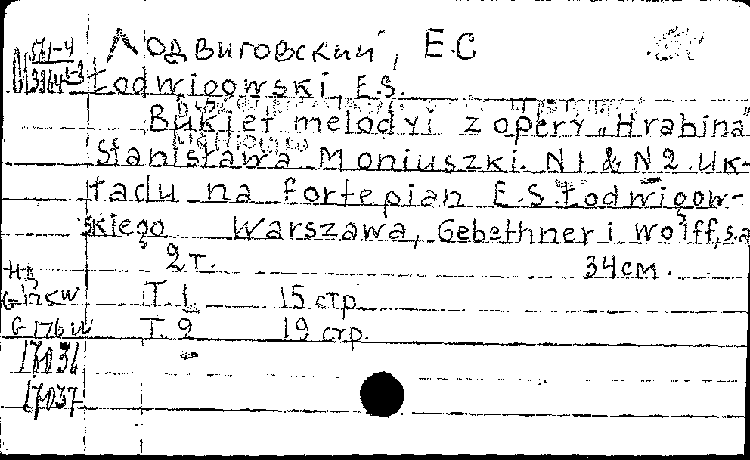 571-4 Лодвиговский, Е.С
Łodwigowski, E.S.
Bukiet melodyi z opery „Hrabina"
Stanisława Moniuszki. N 1 & N 2. Uk-
ładu na fortepian E.S. Łodwigow-
skiego Warszawa, Gebethner i Wolff, s.a
2 т. 34 см.
Нд
G 175 W Т. 1 15 стр.
G 176 W Т. 2 19 стр.
17036
17037